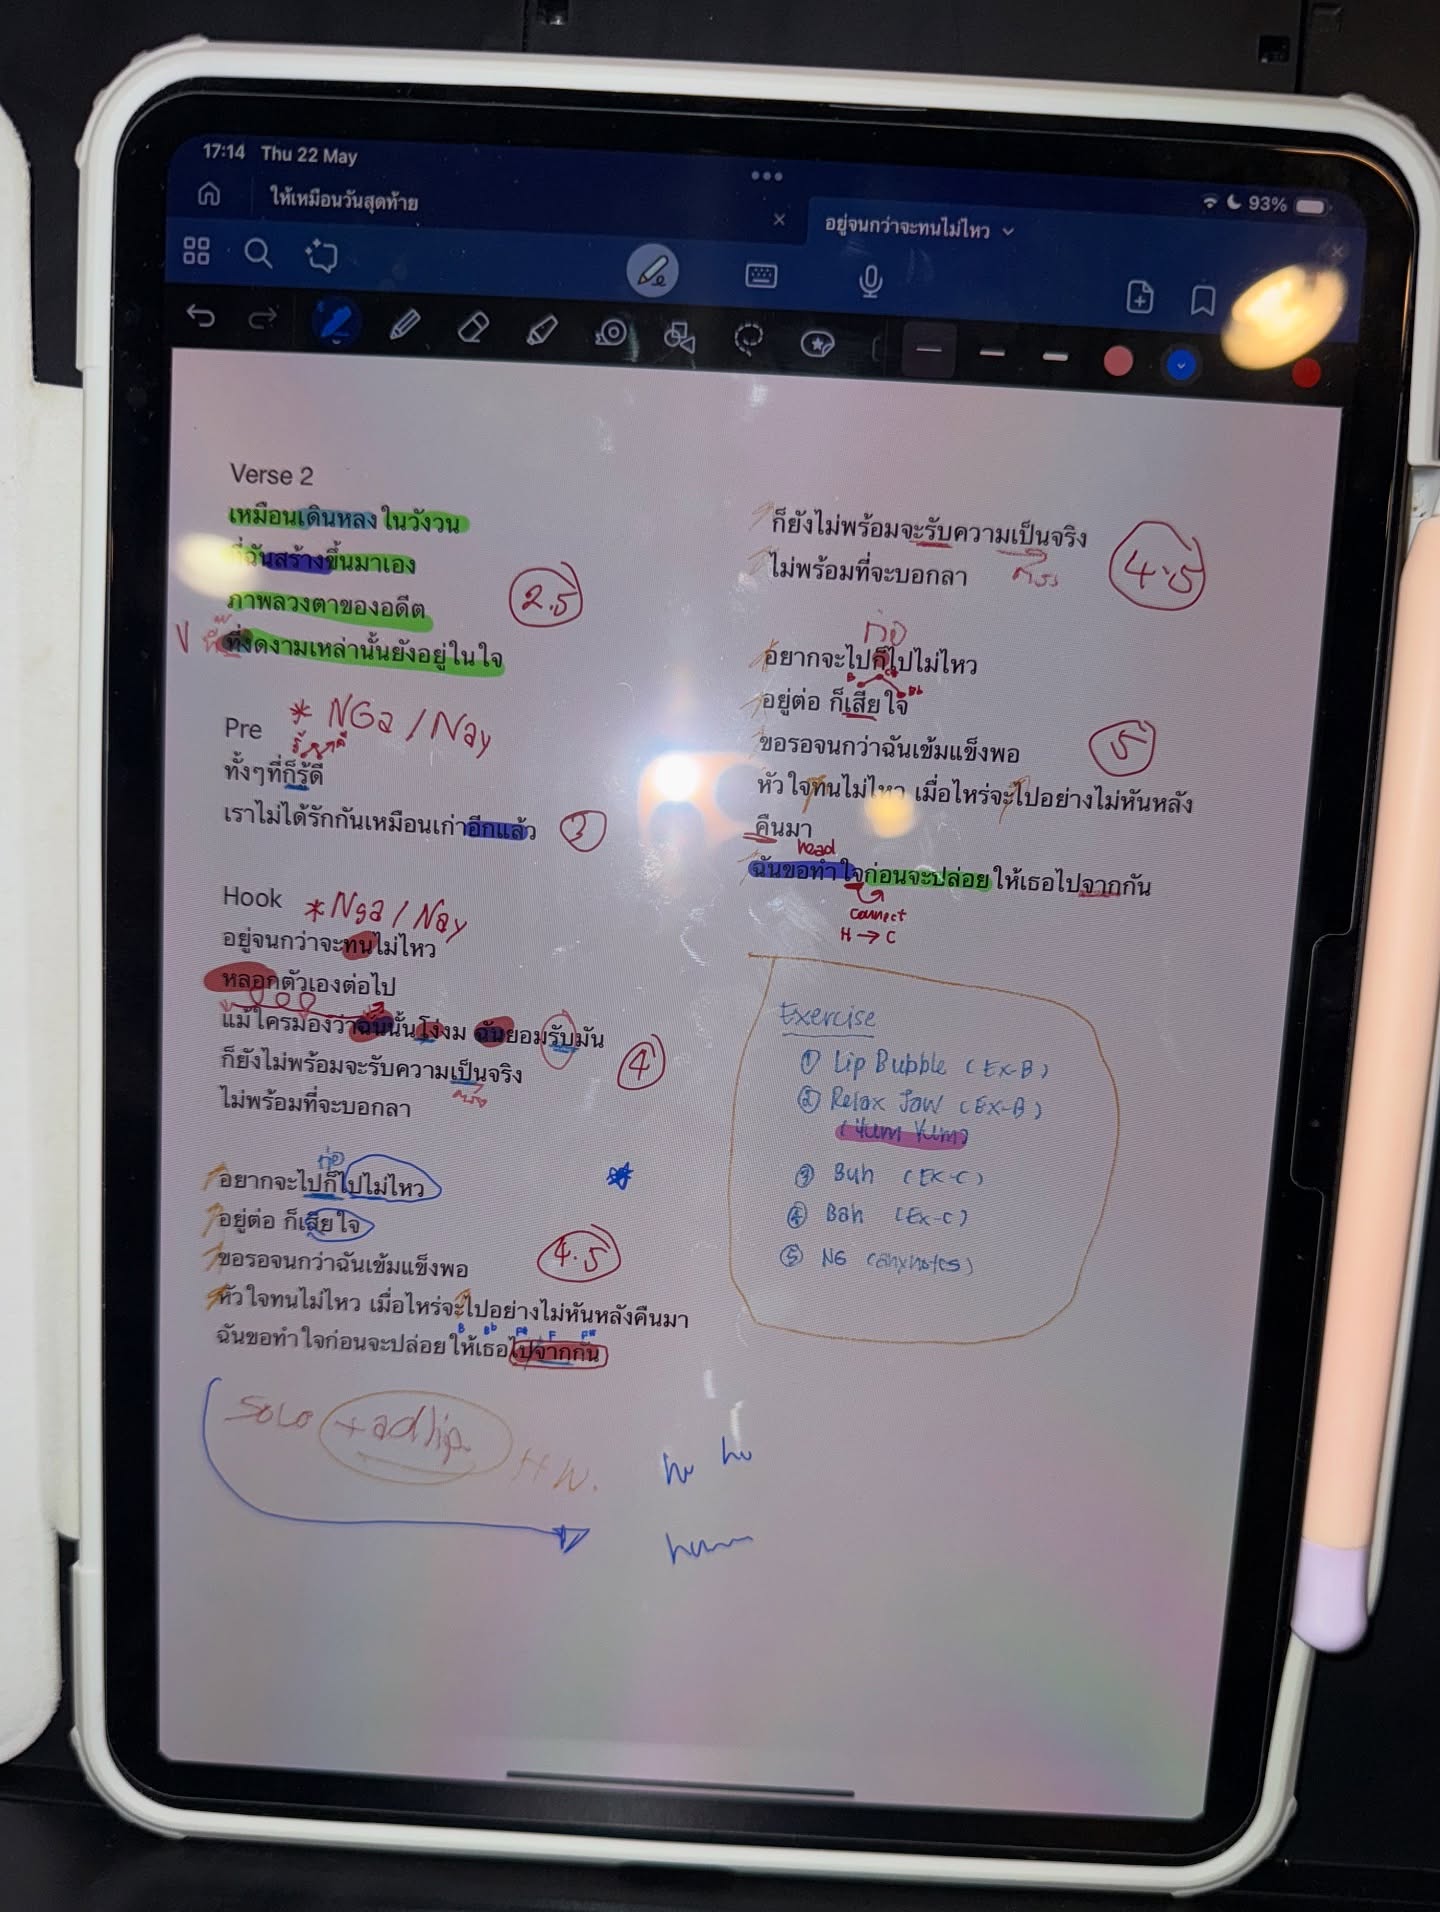 17:14 Thu 22 May
93%
ให้เหมือนวันสุดท้าย
อยู่จนกว่าจะทนไม่ไหว
Verse 2
เหมือนเดินหลงในวังวน
ที่ฉันสร้างขึ้นมาเอง
ภาพลวงตาของอดีต
2.5
ที่งดงามเหล่านั้นยังอยู่ในใจ
Pre * NGa / Nay
ทั้งๆที่ก็รู้ดี
เราไม่ได้รักกันเหมือนเก่าอีกแล้ว
3
Hook * Nga / Nay
อยู่จนกว่าจะทนไม่ไหว
หลอกตัวเองต่อไป
แม้ใครมองว่าฉันนั้นโง่งม ฉันยอมรับมัน
ก็ยังไม่พร้อมจะรับความเป็นจริง
4
ไม่พร้อมที่จะบอกลา
ก่อ
อยากจะไปก็ไปไม่ไหว
อยู่ต่อ ก็เสียใจ
ขอรอจนกว่าฉันเข้มแข็งพอ
4.5
หัวใจทนไม่ไหว เมื่อไหร่จะไปอย่างไม่หันหลังคืนมา
B Bb F# F F#
ฉันขอทำใจก่อนจะปล่อยให้เธอไปจากกัน
Solo + adlip H.W.
hu hu
ก็ยังไม่พร้อมจะรับความเป็นจริง
4.5
ไม่พร้อมที่จะบอกลา
ก่อ
อยากจะไปก็ไปไม่ไหว
อยู่ต่อ ก็เสียใจ
5
ขอรอจนกว่าฉันเข้มแข็งพอ
หัวใจทนไม่ไหว เมื่อไหร่จะไปอย่างไม่หันหลัง
คืนมา
head
ฉันขอทำใจก่อนจะปล่อยให้เธอไปจากกัน
connect
H → C
Exercise
① Lip Bubble (Ex-B)
② Relax Jaw (Ex-B)
(Yum Yum)
③ Buh (Ex-C)
④ Bah (Ex-C)
⑤ NG (anynotes)